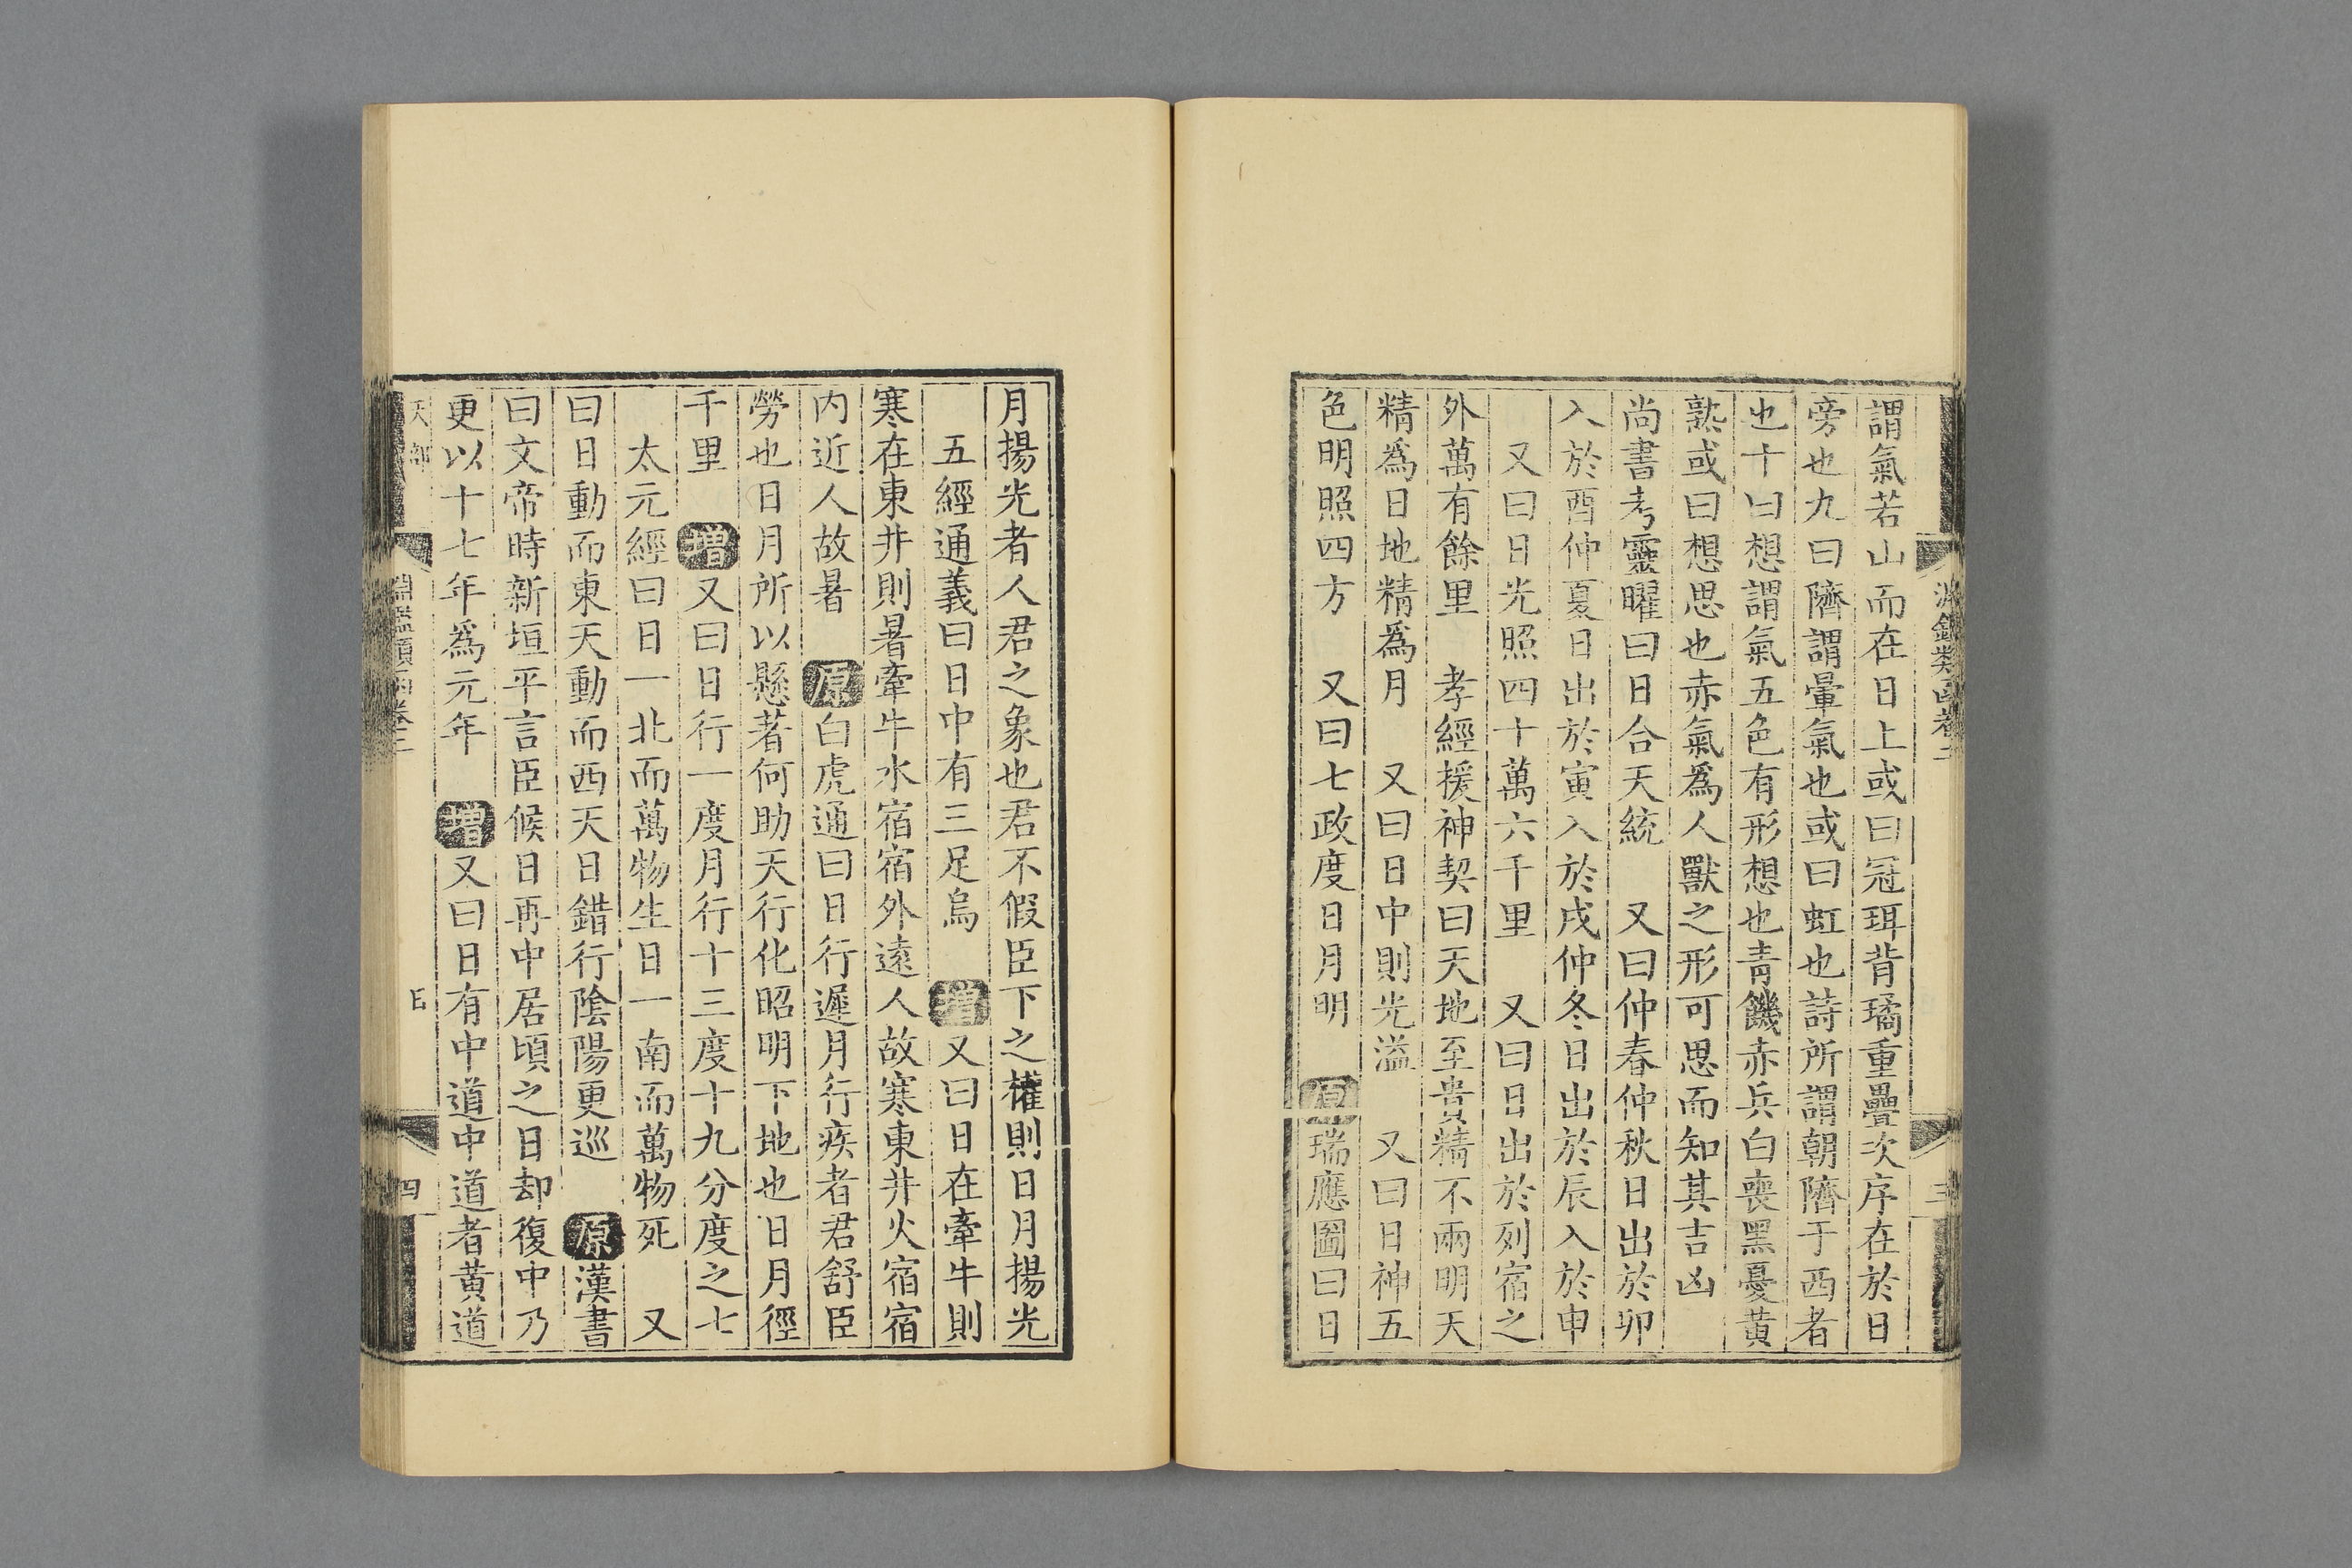 謂氣若山而在日上或曰冠珥背璚重疊次序在於日
旁也九曰隮謂暈氣也或曰虹也詩所謂朝隮于西者
也十曰想謂氣五色有形想也青饑赤兵白喪黑憂黃
熟或曰想思也赤氣爲人獸之形可思而知其吉凶
尚書考靈曜曰日合天統　又曰仲春仲秋日出於卯
入於酉仲夏日出於寅入於戌仲冬日出於辰入於申
又曰日光照四十萬六千里　又曰日出於列宿之
外萬有餘里　孝經援神契曰天地至貴精不兩明天
精爲日地精爲月　又曰日中則光溢　又曰日神五
色明照四方　又曰七政度日月明　原瑞應圖曰日
月揚光者人君之象也君不假臣下之權則日月揚光
五經通義曰日中有三足烏　增又曰日在牽牛則
寒在東井則暑牽牛水宿宿外遠人故寒東井火宿宿
内近人故暑　原白虎通曰日行遲月行疾者君舒臣
勞也日月所以懸著何助天行化昭明下地也日月徑
千里　增又曰日行一度月行十三度十九分度之七
太元經曰日一北而萬物生日一南而萬物死　又
曰日動而東天動而西天日錯行陰陽更巡　原漢書
曰文帝時新垣平言臣候日再中居頃之日却復中乃
更以十七年爲元年　增又曰日有中道中道者黃道
天部
淵鑑類函卷二
四